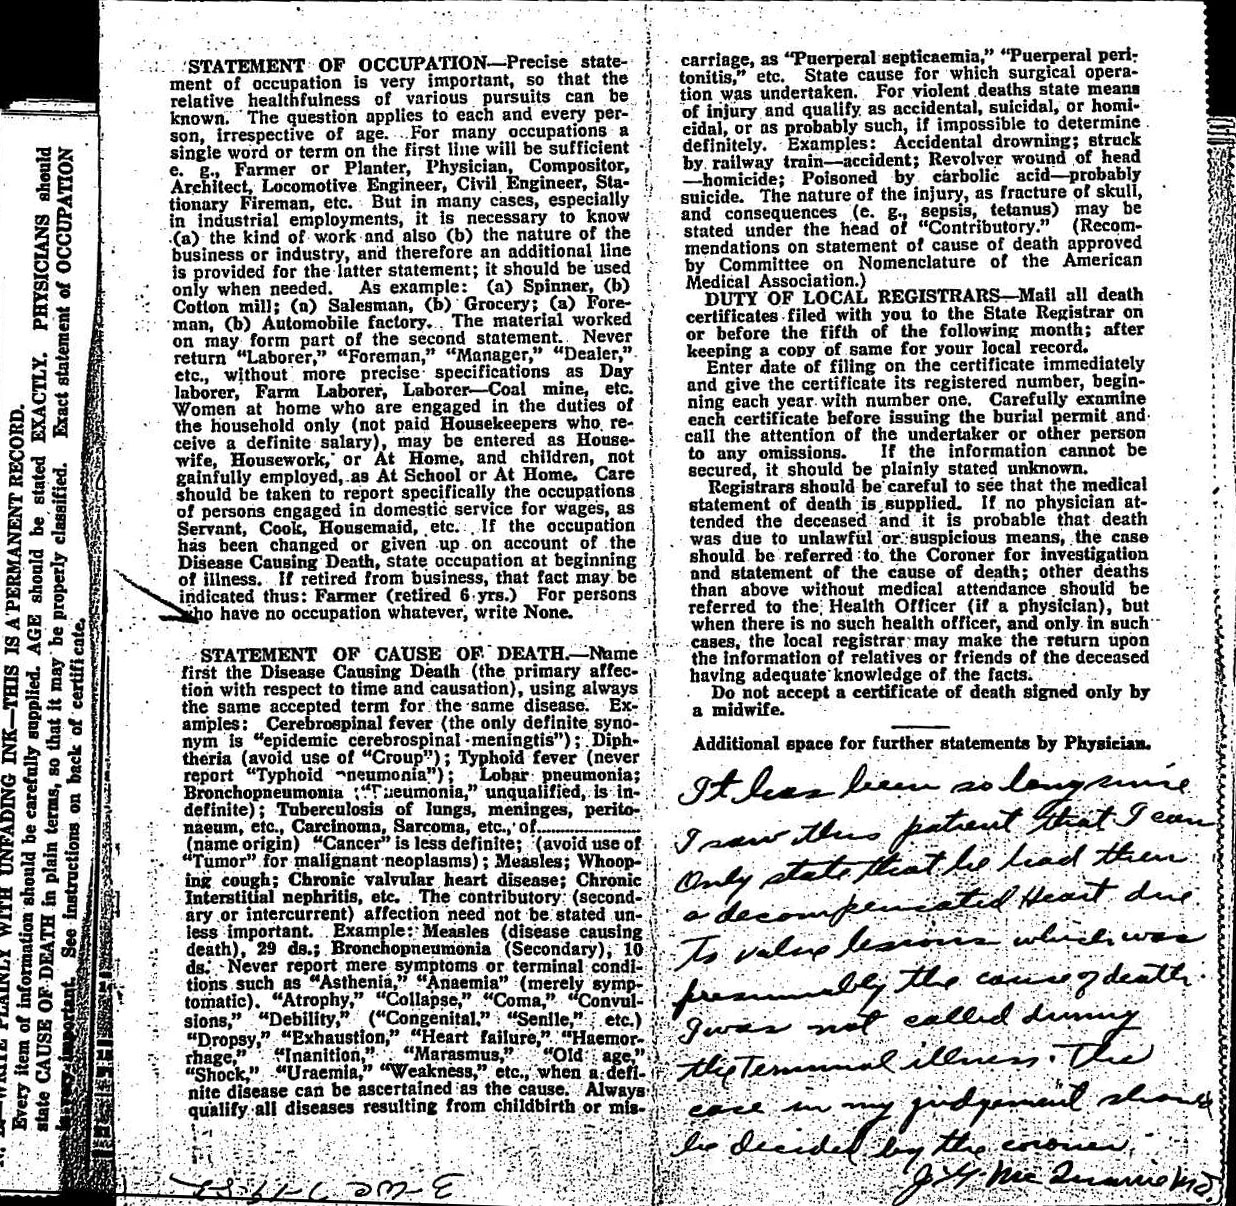 WRITE PLAINLY WITH UNFADING INK—THIS IS A PERMANENT RECORD.
Every item of information should be carefully supplied. AGE should be stated EXACTLY. PHYSICIANS should
state CAUSE OF DEATH in plain terms, so that it may be properly classified. Exact statement of OCCUPATION
important. See instructions on back of certificate.
STATEMENT OF OCCUPATION—Precise state-
ment of occupation is very important, so that the
relative healthfulness of various pursuits can be
known. The question applies to each and every per-
son, irrespective of age. For many occupations a
single word or term on the first line will be sufficient
e. g., Farmer or Planter, Physician, Compositor,
Architect, Locomotive Engineer, Civil Engineer, Sta-
tionary Fireman, etc. But in many cases, especially
in industrial employments, it is necessary to know
(a) the kind of work and also (b) the nature of the
business or industry, and therefore an additional line
is provided for the latter statement; it should be used
only when needed. As example: (a) Spinner, (b)
Cotton mill; (a) Salesman, (b) Grocery; (a) Fore-
man, (b) Automobile factory. The material worked
on may form part of the second statement. Never
return "Laborer," "Foreman," "Manager," "Dealer,"
etc., without more precise specifications as Day
laborer, Farm Laborer, Laborer—Coal mine, etc.
Women at home who are engaged in the duties of
the household only (not paid Housekeepers who re-
ceive a definite salary), may be entered as House-
wife, Housework, or At Home, and children, not
gainfully employed, as At School or At Home. Care
should be taken to report specifically the occupations
of persons engaged in domestic service for wages, as
Servant, Cook, Housemaid, etc. If the occupation
has been changed or given up on account of the
Disease Causing Death, state occupation at beginning
of illness. If retired from business, that fact may be
indicated thus: Farmer (retired 6 yrs.) For persons
who have no occupation whatever, write None.
STATEMENT OF CAUSE OF DEATH.—Name
first the Disease Causing Death (the primary affec-
tion with respect to time and causation), using always
the same accepted term for the same disease. Ex-
amples: Cerebrospinal fever (the only definite syno-
nym is "epidemic cerebrospinal meningtis"); Diph-
theria (avoid use of "Croup"); Typhoid fever (never
report "Typhoid pneumonia"); Lobar pneumonia;
Bronchopneumonia ("Pneumonia," unqualified, is in-
definite); Tuberculosis of lungs, meninges, perito-
naeum, etc., Carcinoma, Sarcoma, etc., of....................
(name origin) "Cancer" is less definite; (avoid use of
"Tumor" for malignant neoplasms); Measles; Whoop-
ing cough; Chronic valvular heart disease; Chronic
Interstitial nephritis, etc. The contributory (second-
ary or intercurrent) affection need not be stated un-
less important. Example: Measles (disease causing
death), 29 ds.; Bronchopneumonia (Secondary), 10
ds. Never report mere symptoms or terminal condi-
tions such as "Asthenia," "Anaemia" (merely symp-
tomatic), "Atrophy," "Collapse," "Coma," "Convul-
sions," "Debility," ("Congenital," "Senile," etc.)
"Dropsy," "Exhaustion," "Heart failure," "Haemor-
rhage," "Inanition," "Marasmus," "Old age,"
"Shock," "Uraemia," "Weakness," etc., when a defi-
nite disease can be ascertained as the cause. Always
qualify all diseases resulting from childbirth or mis-
carriage, as "Puerperal septicaemia," "Puerperal peri-
tonitis," etc. State cause for which surgical opera-
tion was undertaken. For violent deaths state means
of injury and qualify as accidental, suicidal, or homi-
cidal, or as probably such, if impossible to determine
definitely. Examples: Accidental drowning; struck
by railway train—accident; Revolver wound of head
—homicide; Poisoned by carbolic acid—probably
suicide. The nature of the injury, as fracture of skull,
and consequences (e. g., sepsis, tetanus) may be
stated under the head of "Contributory." (Recom-
mendations on statement of cause of death approved
by Committee on Nomenclature of the American
Medical Association.)
DUTY OF LOCAL REGISTRARS—Mail all death
certificates filed with you to the State Registrar on
or before the fifth of the following month; after
keeping a copy of same for your local record.
Enter date of filing on the certificate immediately
and give the certificate its registered number, begin-
ning each year with number one. Carefully examine
each certificate before issuing the burial permit and
call the attention of the undertaker or other person
to any omissions. If the information cannot be
secured, it should be plainly stated unknown.
Registrars should be careful to see that the medical
statement of death is supplied. If no physician at-
tended the deceased and it is probable that death
was due to unlawful or suspicious means, the case
should be referred to the Coroner for investigation
and statement of the cause of death; other deaths
than above without medical attendance should be
referred to the Health Officer (if a physician), but
when there is no such health officer, and only in such
cases, the local registrar may make the return upon
the information of relatives or friends of the deceased
having adequate knowledge of the facts.
Do not accept a certificate of death signed only by
a midwife.
Additional space for further statements by Physician.
It has been so long since
I saw this patient that I can
Only state that he had then
a decompensated Heart due
To valve lesions which was
presumably the cause of death.
I was not called during
the Terminal illness. The
case in my judgement should
be decided by the coroner.